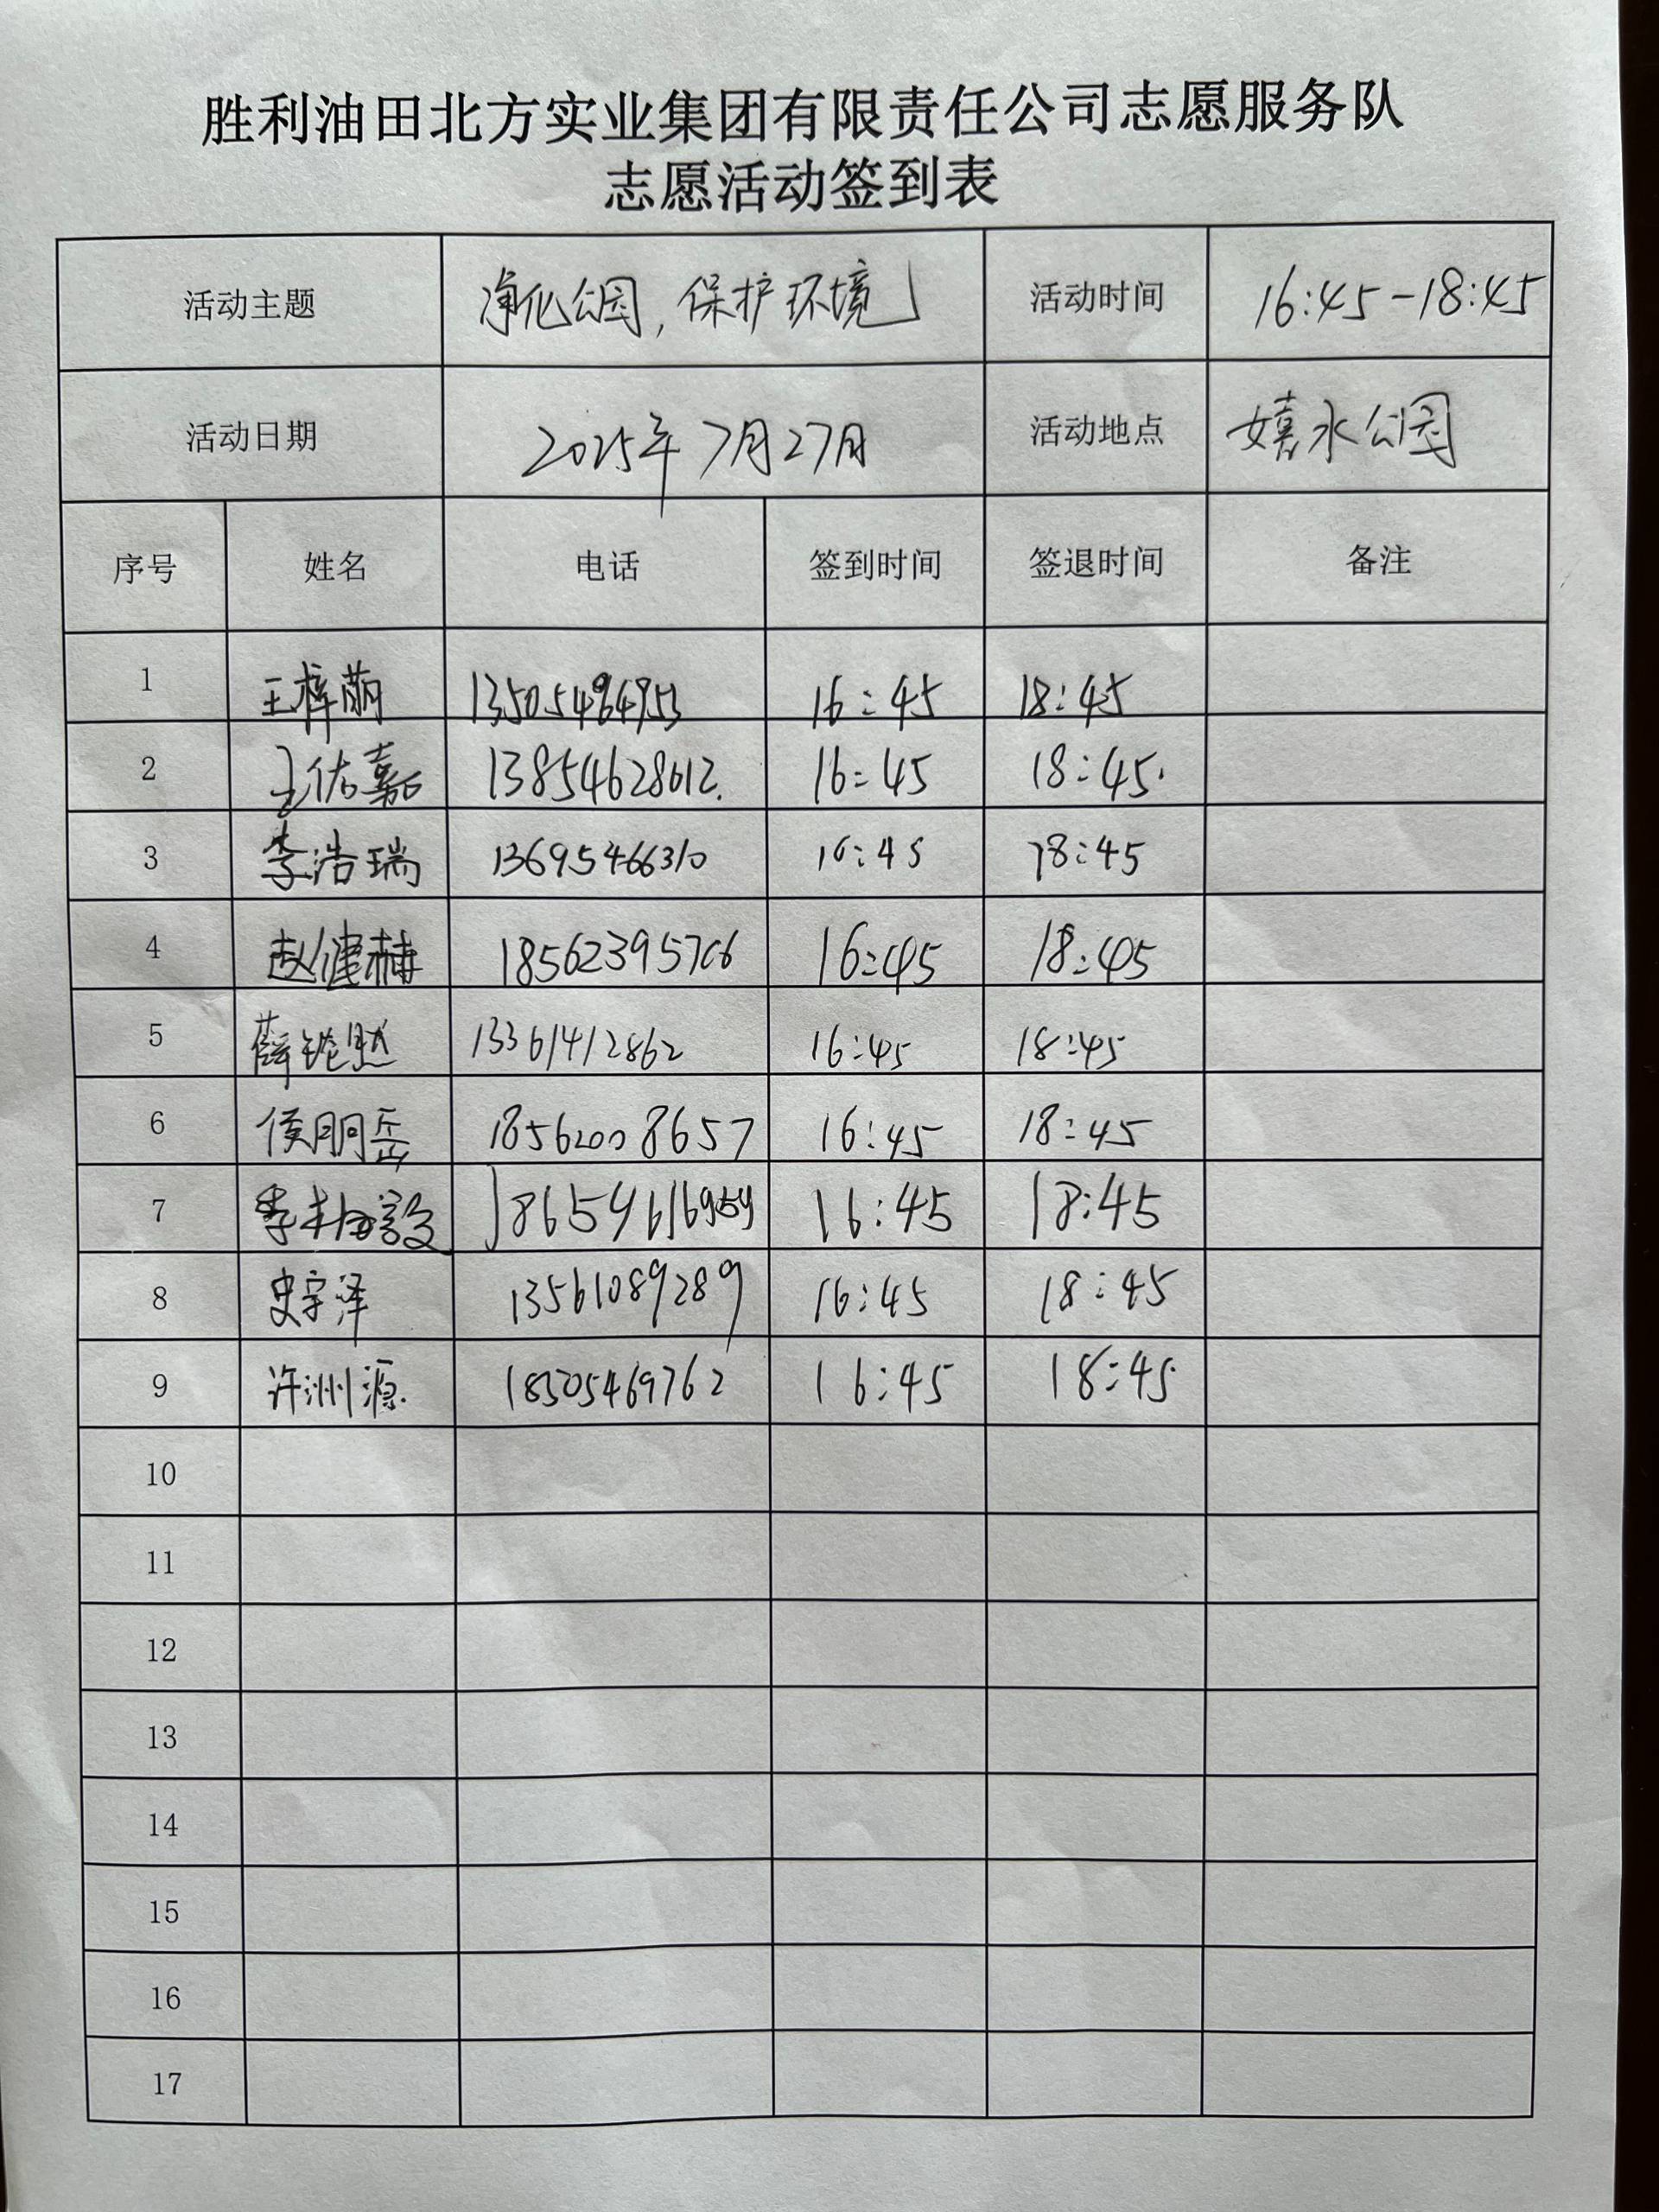 胜利油田北方实业集团有限责任公司志愿服务队
志愿活动签到表
活动主题 净化公园,保护环境 活动时间 16:45-18:45
活动日期 2025年7月27日 活动地点 嬉水公园
序号 姓名 电话 签到时间 签退时间 备注
1 王梓萌 16:45 18:45
2 王佑嘉 13854628612. 16:45 18:45.
3 李浩瑞 13695466310 16:45 18:45
4 赵健赫 18562395766 16:45 18:45
5 13361412862 16:45 18:45
6 侯朋岳 18562008657 16:45 18:45
7 16:45 18:45
8 史宇泽 13561089289 16:45 18:45
9 许洲源. 18505469762 16:45 18:45
10
11
12
13
14
15
16
17